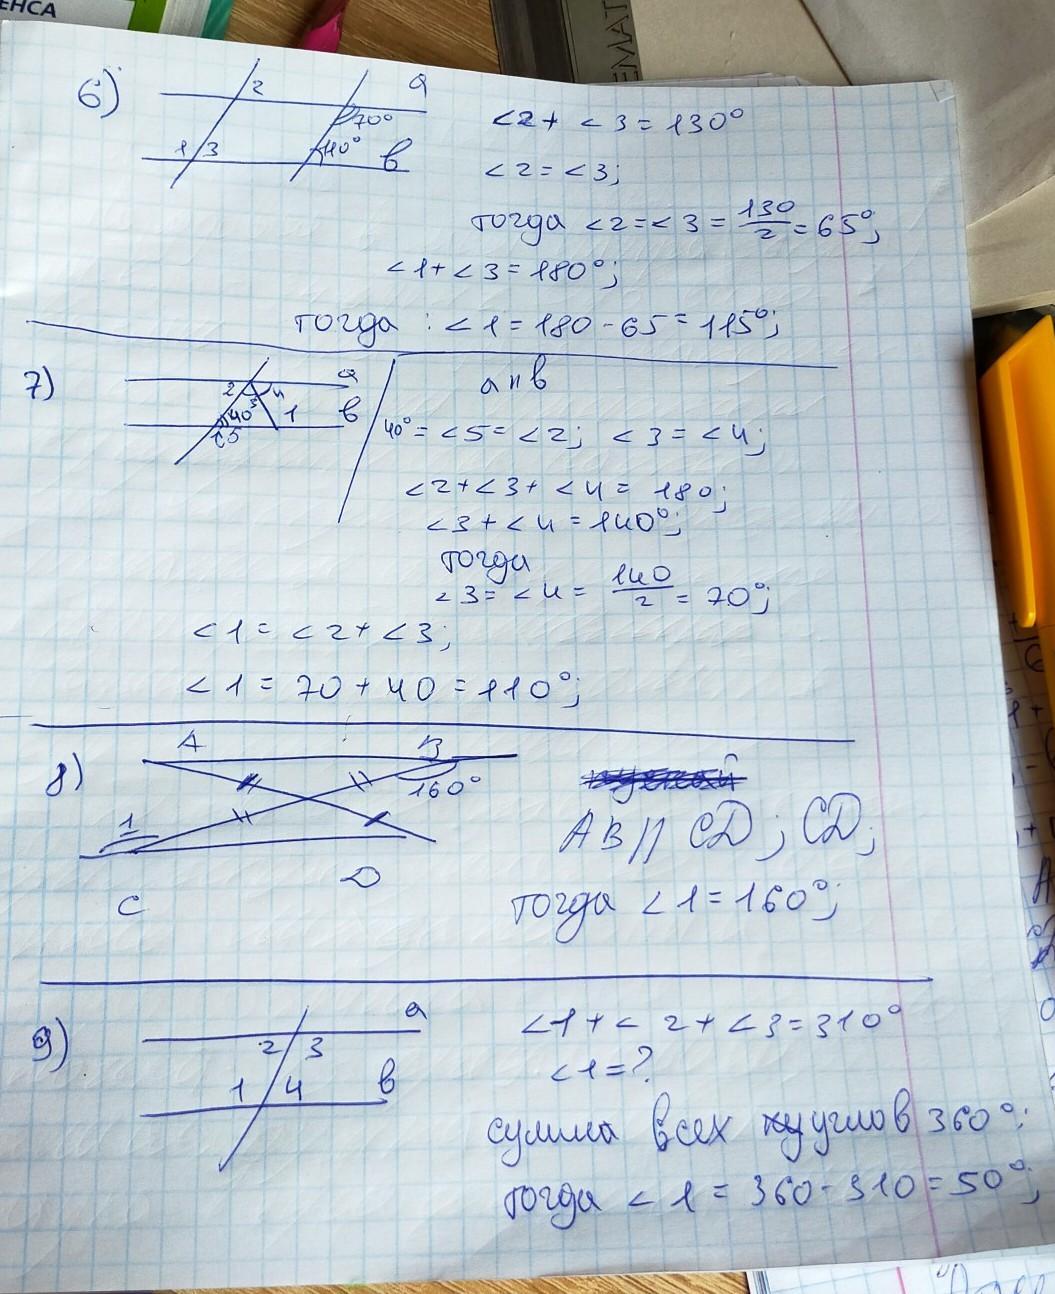 ЕНСА
ЕМАТ
6)
2
a
70°
1 3
110°
в
<2 + <3 = 130°
<2 = <3;
тогда <2 = <3 = 130/2 = 65°;
<1 + <3 = 180°;
тогда : <1 = 180 - 65 = 115°;
7)
a
2 4
3
40°
1
в
5
a п в
40° = <5 = <2; <3 = <4;
<2 + <3 + <4 = 180;
<3 + <4 = 140°;
тогда
<3 = <4 = 140/2 = 70°;
<1 = <2 + <3;
<1 = 70 + 40 = 110°;
8)
A
B
160°
1
C
D
AB || CD; CD;
тогда <1 = 160°;
9)
a
2 3
1 4
в
<1 + < 2 + <3 = 310°
<1 = ?
сумма всех углов 360°;
тогда < 1 = 360 - 310 = 50°;